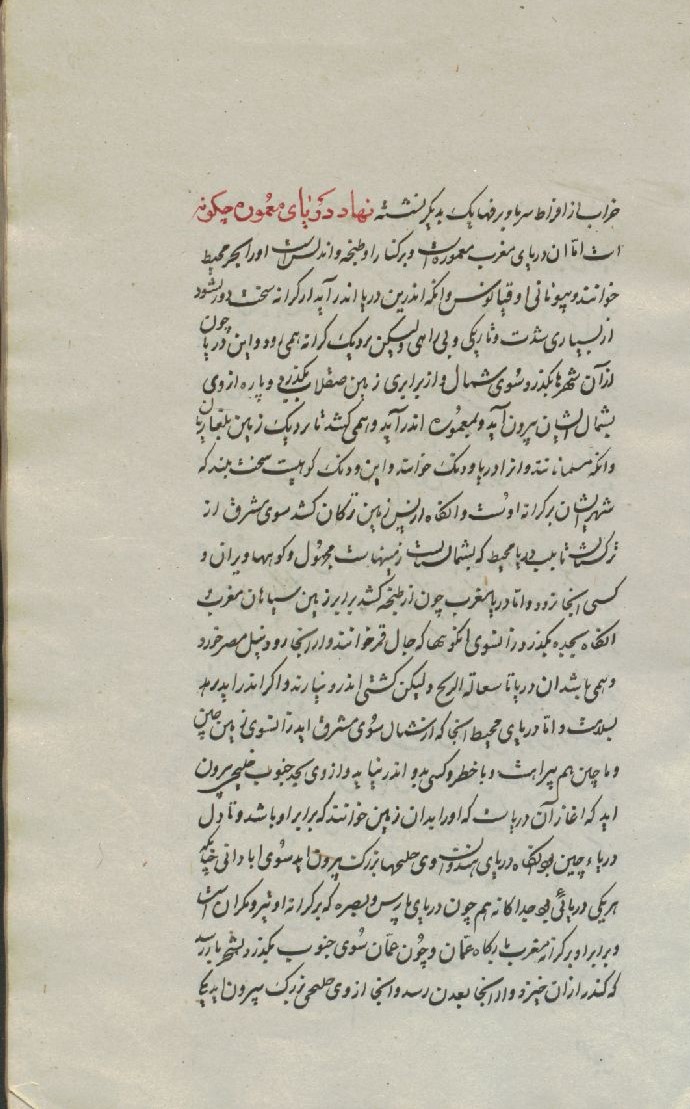 خراب از افراط سرما و برفها یک بدیگر نشسته نهاد دریاهای معموره چگونه
است اما آن دریای مغرب معمورست و بر کنار او طنجه و اندلس است او را بحر محیط
خوانند و بیونانی اوقیانوس و انکه اندرین دریا اندر آید از کرانه سخت دور نشود
از بسیاری شدت و تاریکی و بی راهی ولیکن نزدیک کرانه همی رود و این دریا چون
از آن شهرها بگذرد سوی شمال و از برابری زمین صقلاب بگذرد و پاره از وی
بشمال ایشان بیرون آید و بمعموره اندر آید و همی کشد تا نزدیک زمین بلغاریان
و انکه مسلمانانند و او را دریا ورنک خوانند و این ورنک کوهیست سخت بلند که
شهر ایشان بر کرانه اوست و انگاه از پس زمین ترکان کشد سوی مشرق از
ترکستان تا بلب دریا محیط که بشمالست زمینهاست مجهول و کوهها ویران و
کسی آنجا نرود و اما دریا مغرب چون از طنجه کشد برابر زمین سیاهان مغرب
انگاه بجده بگذرد زانسوی انکوهها که جبال قمر خوانند و از انجا رود نیل مصر خورد
و همی باشد ان دریا تا سفاله الریح ولیکن کشتی اندرو نیارند و اگر اندر اید نرهد
بسلامت و اما دریای محیط آنجا که از شمال سوی مشرق اید زانسوی زمین چین
و ماچین هم بیراهست و با خطر و کسی بدو اندر نیاید و از وی بحد جنوب خلیجی بیرون
اید که اغاز آن دریاست که او را بدان زمین خوانند که برابر او باشد و تا دل
دریاء چین بود انگاه دریای هندوان و از وی خلیجها بزرگ بیرون اید سوی ابادانی چنانکه
هر یکی دریائی بود جداگانه هم چون دریای پارس و بصره که بر کرانه او تیز و مکران است
و برابر او بر کرانه مغرب بارگاه عمان و چون عمان سوی جنوب بگذرد بشحر رسد
که کندر از ان خیزد و از انجا بعدن رسد و انجا از وی خلیجی بزرگ بیرون اید یکی